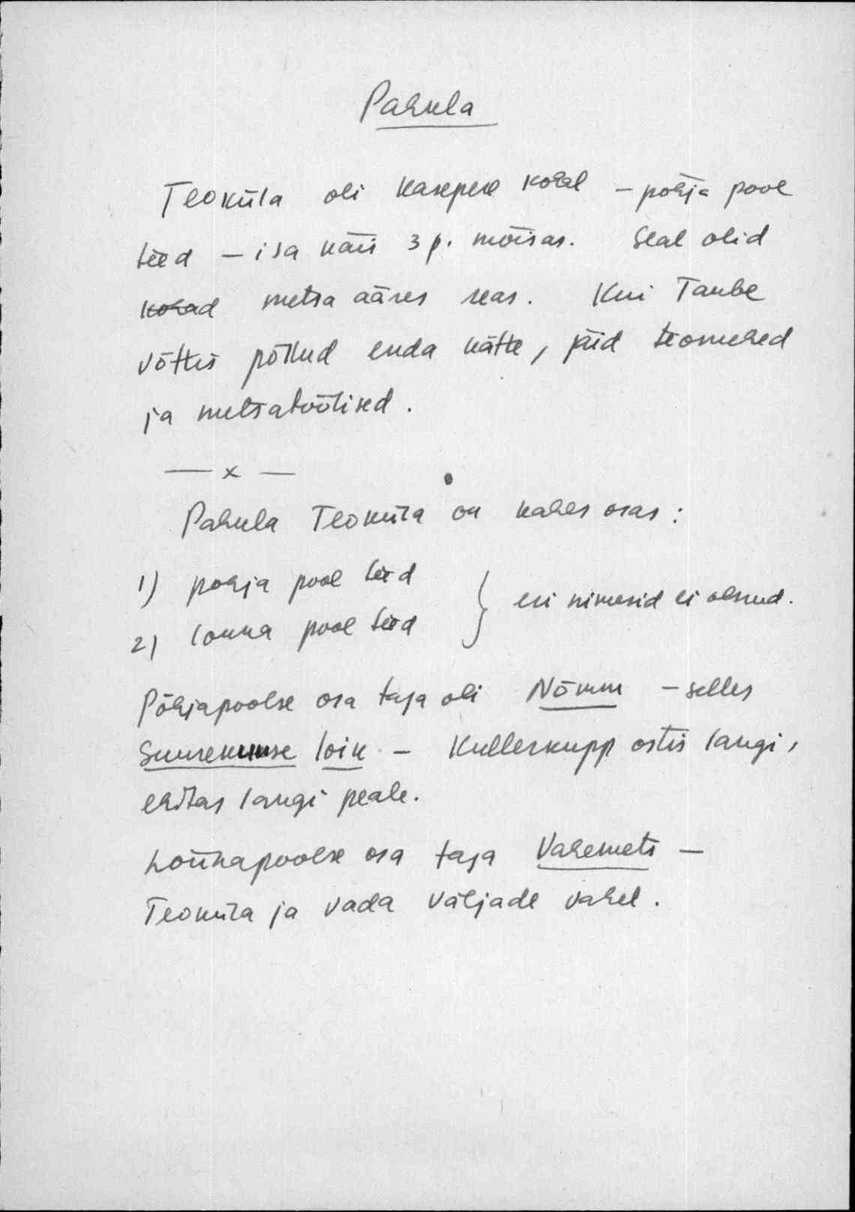 Pahula
Teoküla oli Kasepere kohal – põhja pool
teed – isa käis 3 p. mõisas. Seal olid
kohad metsa ääres reas. Kui Taube
võttis põllud enda kätte, jäid teomehed
ja metsatöölised.
— x —
Pahula Teoküla on kahes osas:
1) põhja pool teed
2) lõuna pool teed } eri nimesid ei olnud.
Põhjapoolse osa taga oli Nõmm – selles
Suurekuuse loik – Kullerkupp ostis langi,
ehitas langi peale.
Lõunapoolse osa taga Vahemets –
Teoküla ja Vada väljade vahel.